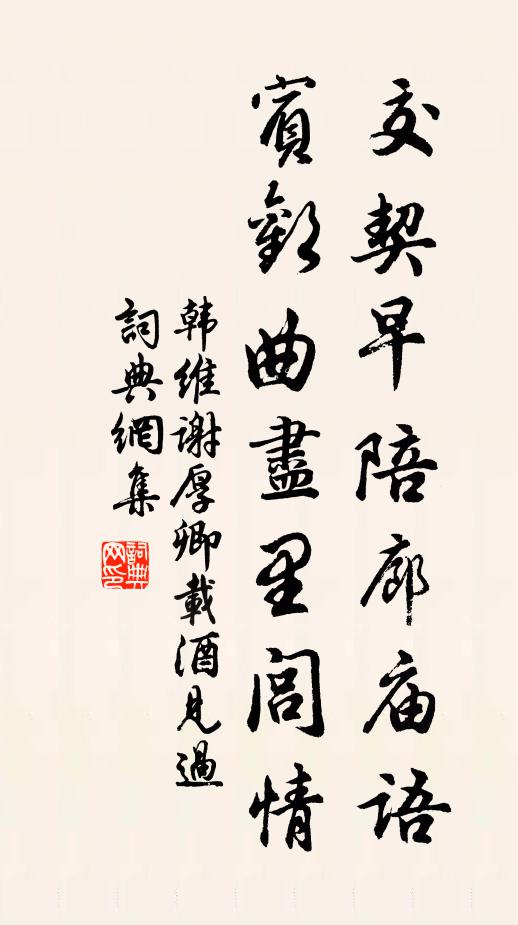 交契早陪廊庙语
賓歡曲盡里閭情
韩维谢厚卿載酒見過
詞典網集
詞典
网印